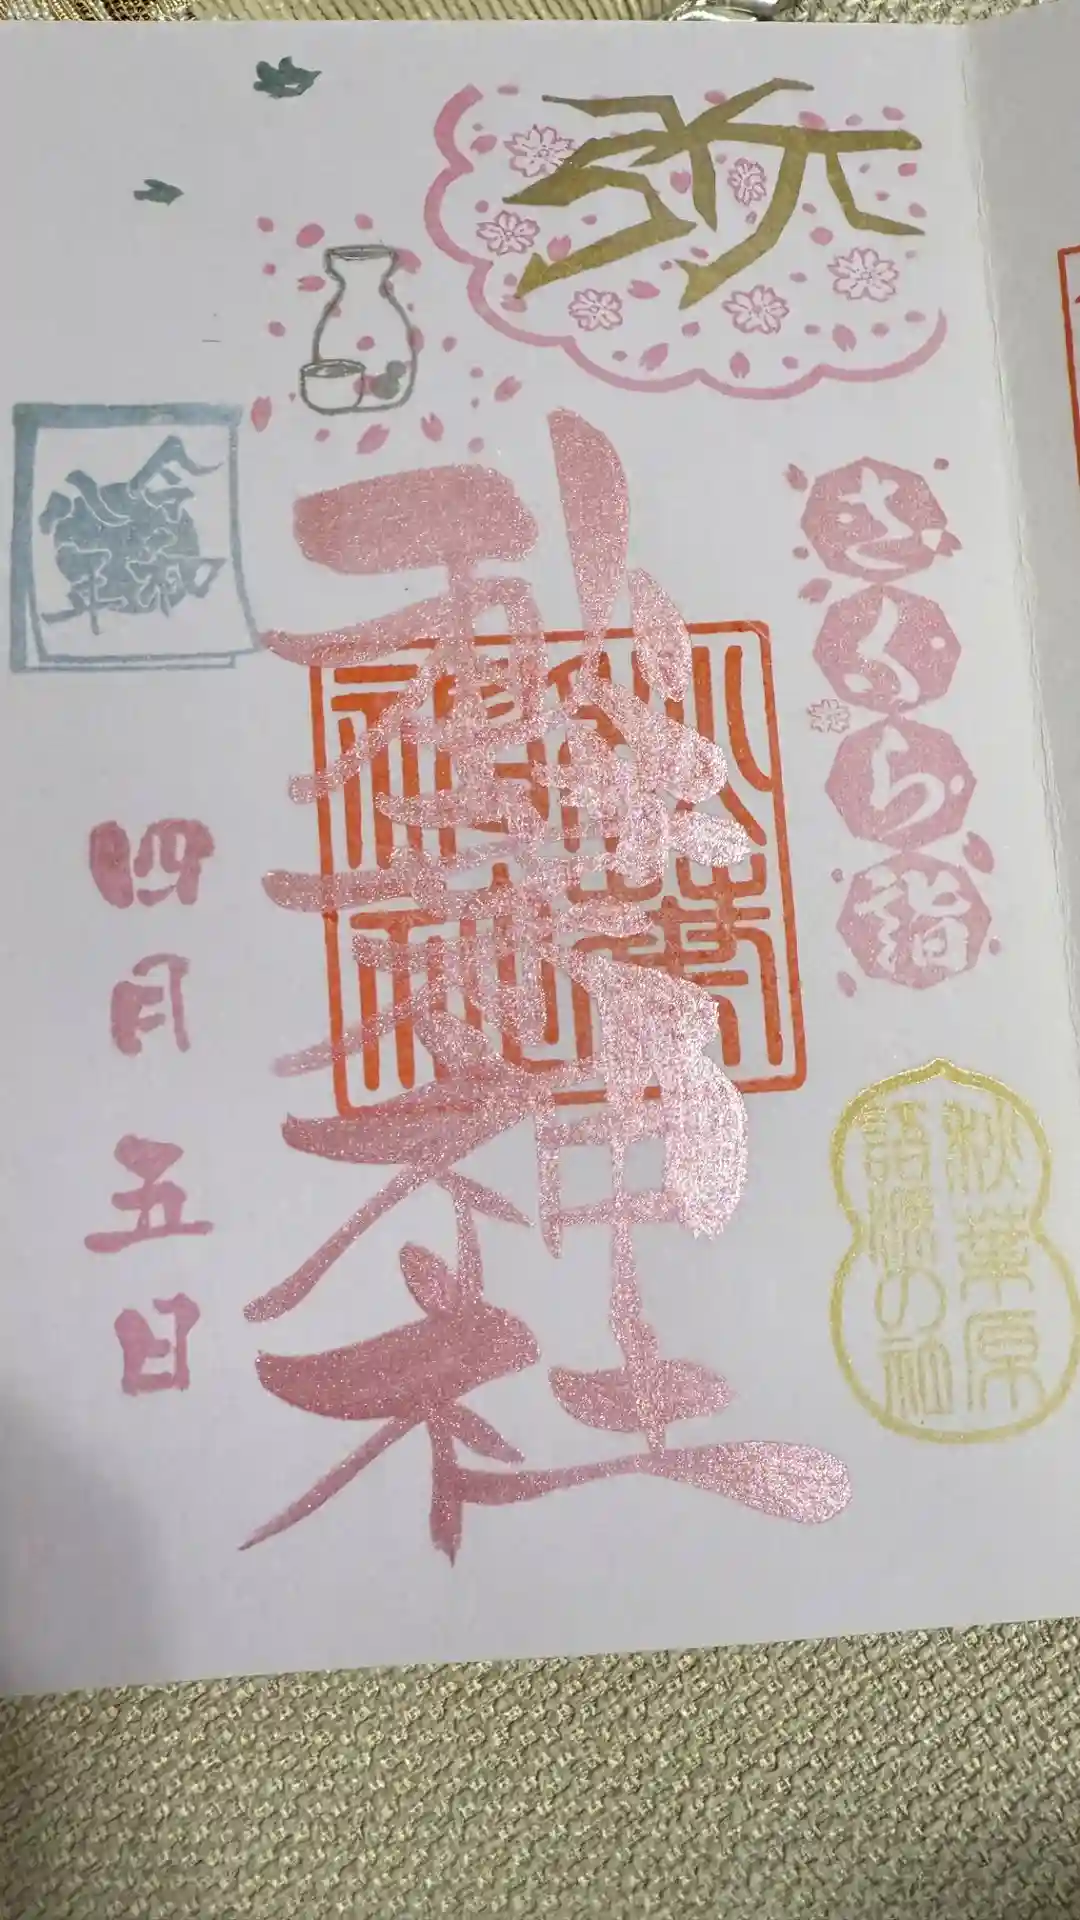 さくら詣
秋葉原
語源の社
秋葉神社
秋葉
神社
令和
年
四月五日